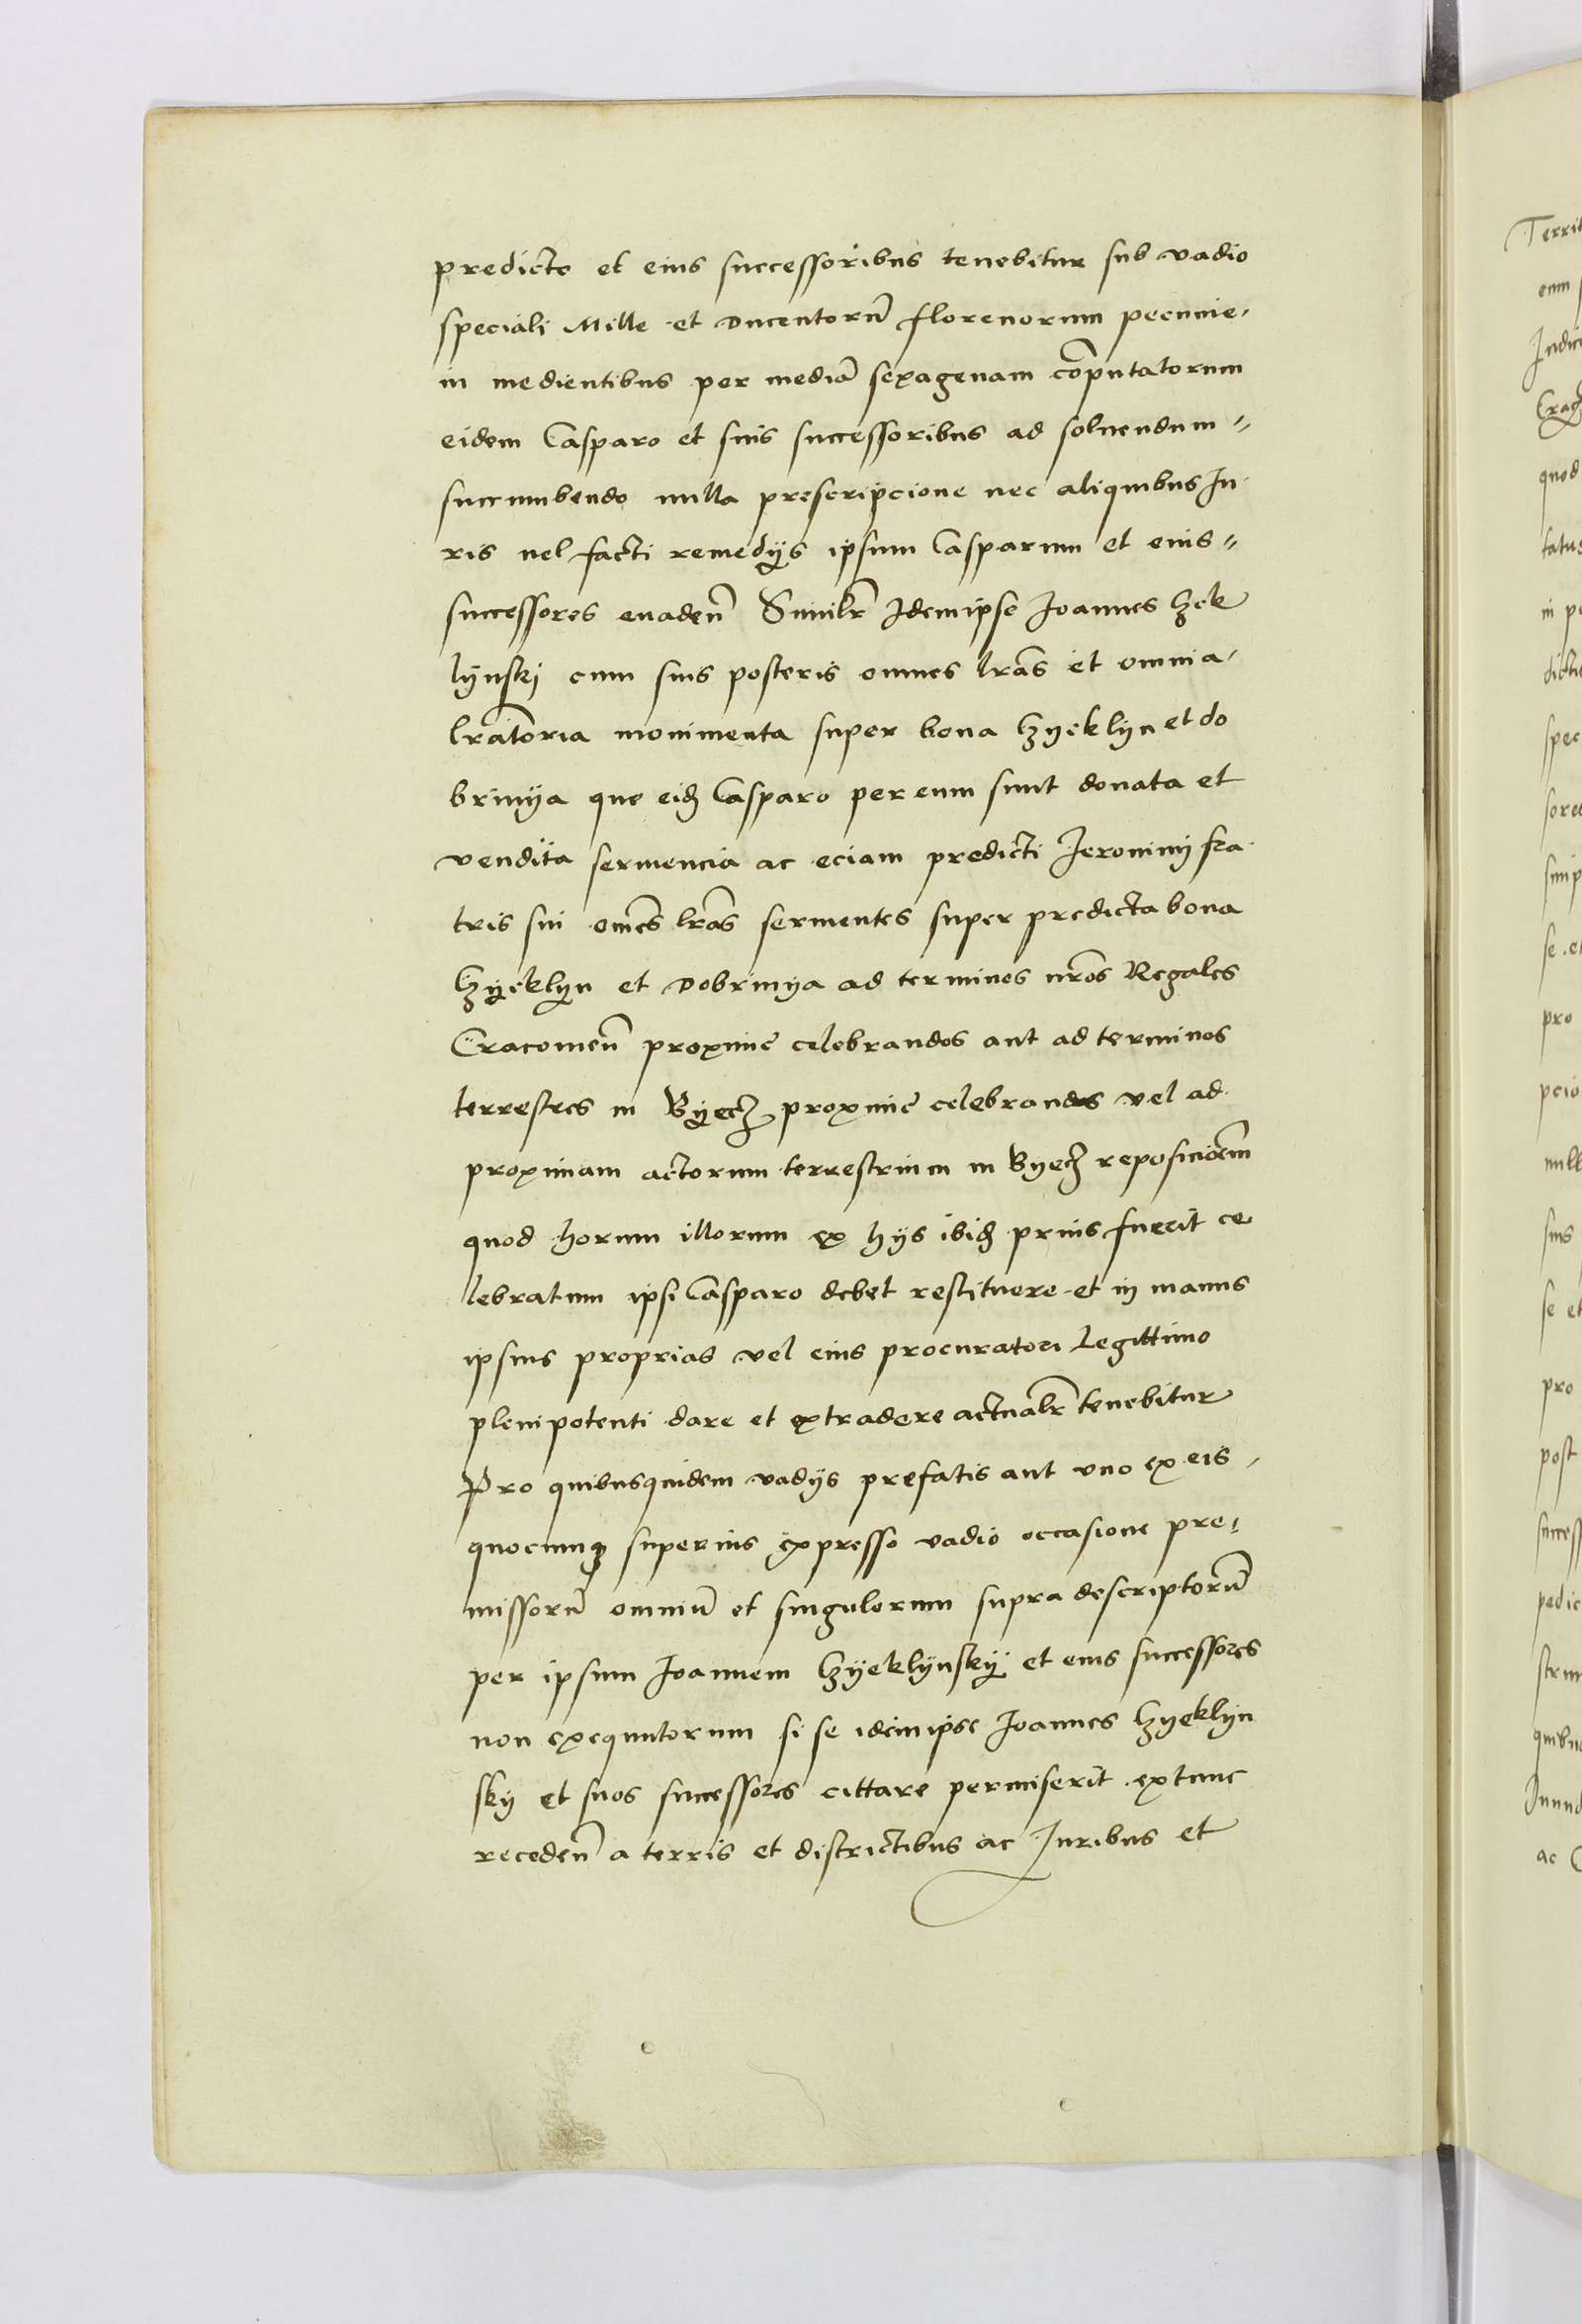 predicto et eius successoribus tenebitur sub vadio
speciali Mille et ducentorū florenorum pecunie
in medientibus per mediā sexagenam cōputatorum
eidem Casparo et suis successoribus ad soluendum
succumbendo nulla prescripcione nec aliquibus Iu
ris uel facti remedijs ipsum Casparum et eius
successores euadeñ Similr̃ Idem ipse Ioannes Czek
lynskj cum suis posteris omnes lr̃as et omnia
lr̃atoria monimenta super bona Czyeklyn et do
brinya que eidʒ Casparo per eum sunt donata et
vendita seruiencia ac eciam predicti Ieronimj fra
tris sui om̃es lr̃as seruientes super predicta bona
Czyeklyn et Dobrinya ad terminos nr̃os Regales
Cracouieñ proxime celebrandos aut ad terminos
terrestres in Byecz proxime celebrandos vel ad
proximam actorum terrestrium in Byecz reposicioem̃
quod horum illorum ex hijs ibidʒ prius fuerit ce
lebratum ipsi Casparo debet restituere et in manus
ipsius proprias vel eius procuratori Legittimo
plenipotenti dare et extradere actualr̃ tenebitur
Pro quibusquidem vadijs prefatis aut vno ex eis
quocumqʒ superius expresso vadio occasione pre
missorū omniū et singulorum supra descriptorū
per ipsum Ioannem Czyeklynsky et eius successores
non exequutorum si se idem ipse Ioannes Czyeklyn
sky et suos successores cittare permiserit extunc
recedeñ a terris et districtibus ac Iuribus et
Territ
eum
quod
tatus
in p
dicti
spec
sores
se e
pro
pcio
null
suis
se et
pro
post
success
quibus
ac C